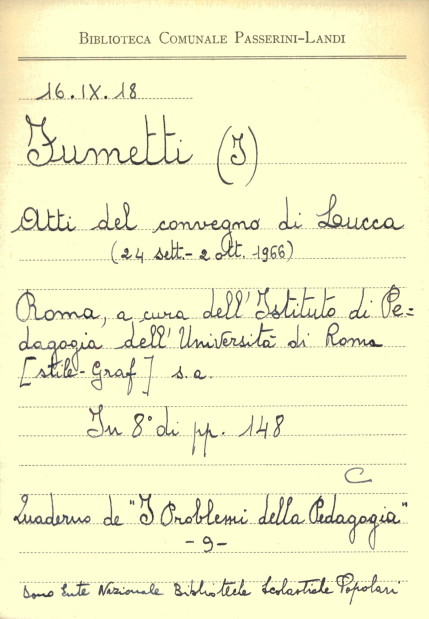 BIBLIOTECA COMUNALE PASSERINI-LANDI
16.IX.18
Fumetti (I)
Atti del convegno di Lucca
(24 sett.- 2 ott. 1966)
Roma, a cura dell'Istituto di Pe=
dagogia dell'Università di Roma
[stile-Graf] s.a.
In 8° di pp. 148
C
Quaderno de "I Problemi della Pedagogia"
-9-
Dono Ente Nazionale Biblioteche Scolastiche Popolari